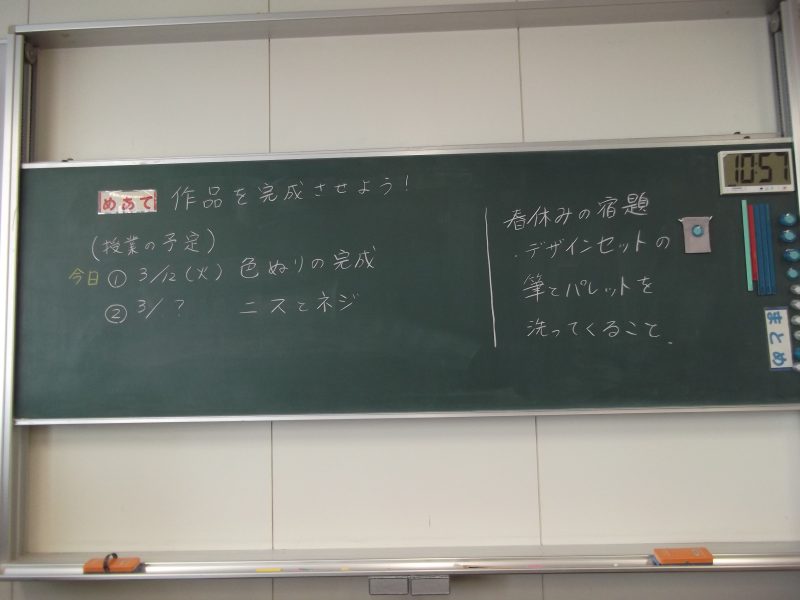 めあて 作品を完成させよう!
(授業の予定)
今日 ① 3/12(火) 色ぬりの完成
② 3/ ? ニスとネジ
春休みの宿題
・デザインセットの
筆とパレットを
洗ってくること.
10:57
まとめ